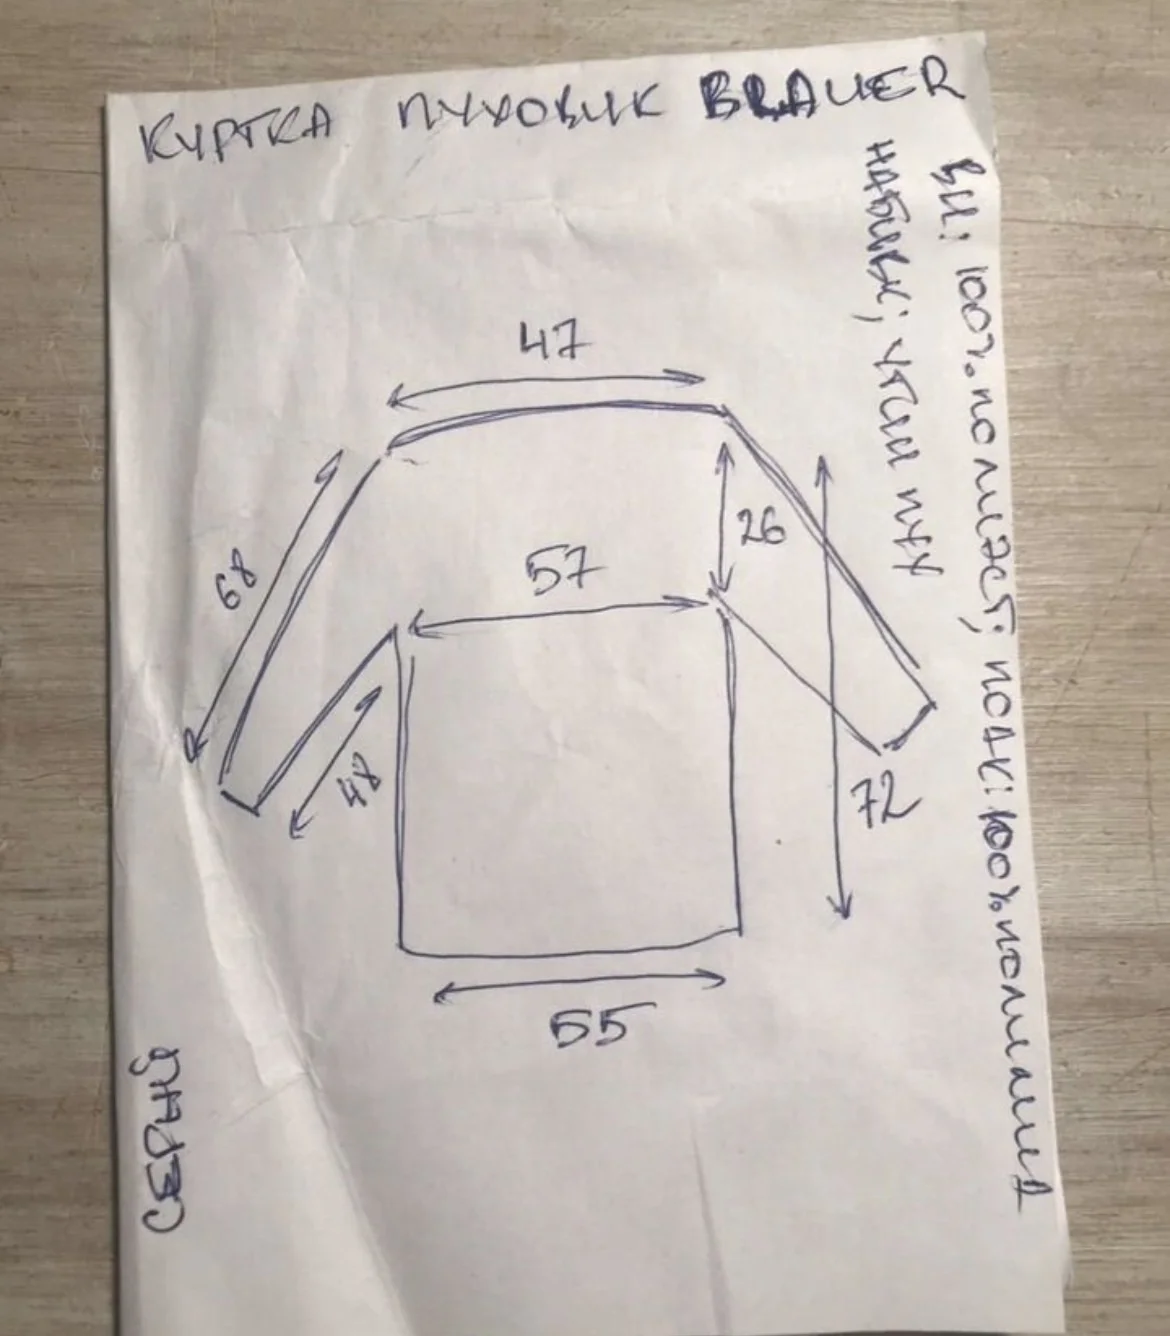 КУРТКА ПУХОВИК BRAUER
ВН: 100% полиэст; подк: 100% полиамид
набивк; утин пух
47
68
26
57
48
72
55
СЕРЫЙ